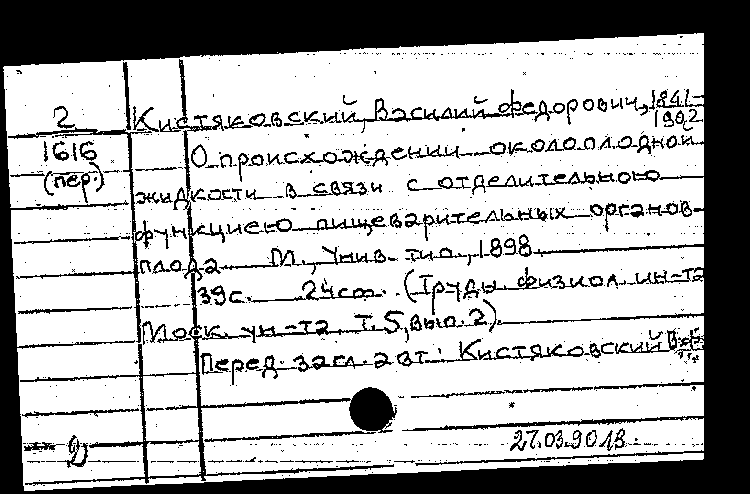 2 Кистяковский, Василий Федорович, 1841-
1902
1616 О происхождении околоплодной
(пер.) жидкости в связи с отделительною
функциею пищеварительных органов
плода. М., Унив. тип., 1898.
39с. 24см. (Труды физиол. ин-та
Моск. ун-та. Т.5, вып.2).
Перед загл. авт.: Кистяковский
27.03.90